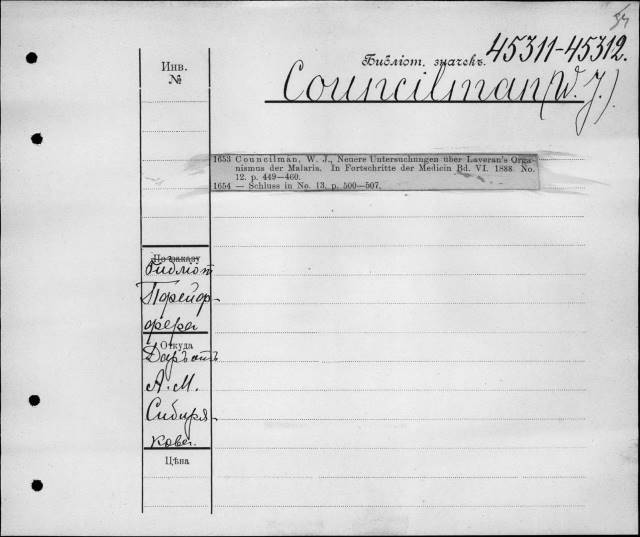 54
Библіот. значекъ. 45311-45312.
Инв.
№
Councilman (W. J.).
1653 Councilman, W. J., Neuere Untersuchungen über Laveran's Orga-
nismus der Malaria. In Fortschritte der Medicin Bd. VI. 1888. No.
12. p. 449—460.
1654 — Schluss in No. 13. p. 500—507.
По заказу
Библіот
Пфейф-
фера
Откуда
Даръ отъ
А. М.
Сибиря-
кова.
Цѣна